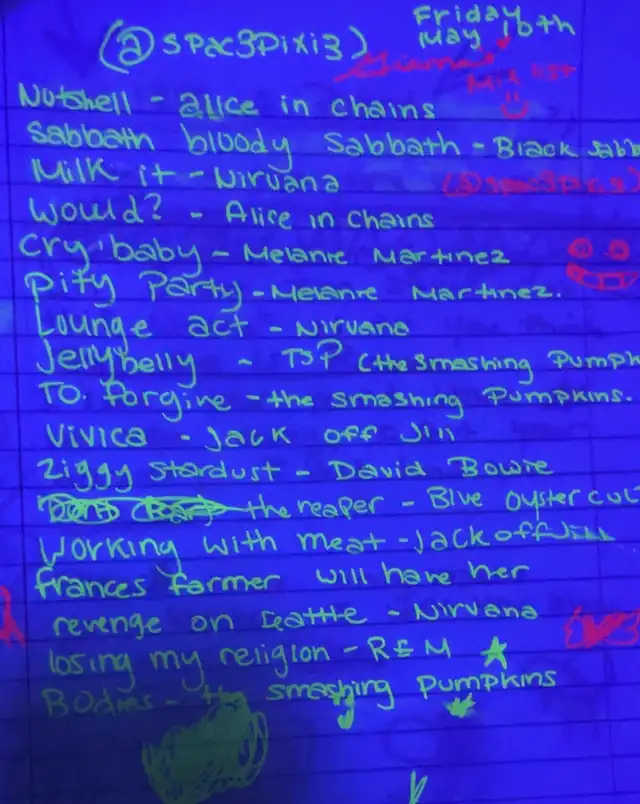 Friday
May 10th
(@spac3pixi3)
Mix list
Nutshell - alice in chains
Sabbath bloody Sabbath - Black sabb
Milk it - Nirvana
(@spac3pix3)
Would? - Alice in chains
Cry'baby - Melanie Martinez
Pity Party - Melanie Martinez.
Lounge act - Nirvana
Jellybelly - TSP (the smashing Pumpk
TO. forgive - the smashing Pumpkins.
Vivica - Jack off Jin
Ziggy Stardust - David Bowie
the reaper - Blue oyster cul
Working with meat - Jack off Jill
frances farmer will have her
revenge on Seattle - Nirvana
losing my religion - REM
Bodies - the smashing Pumpkins